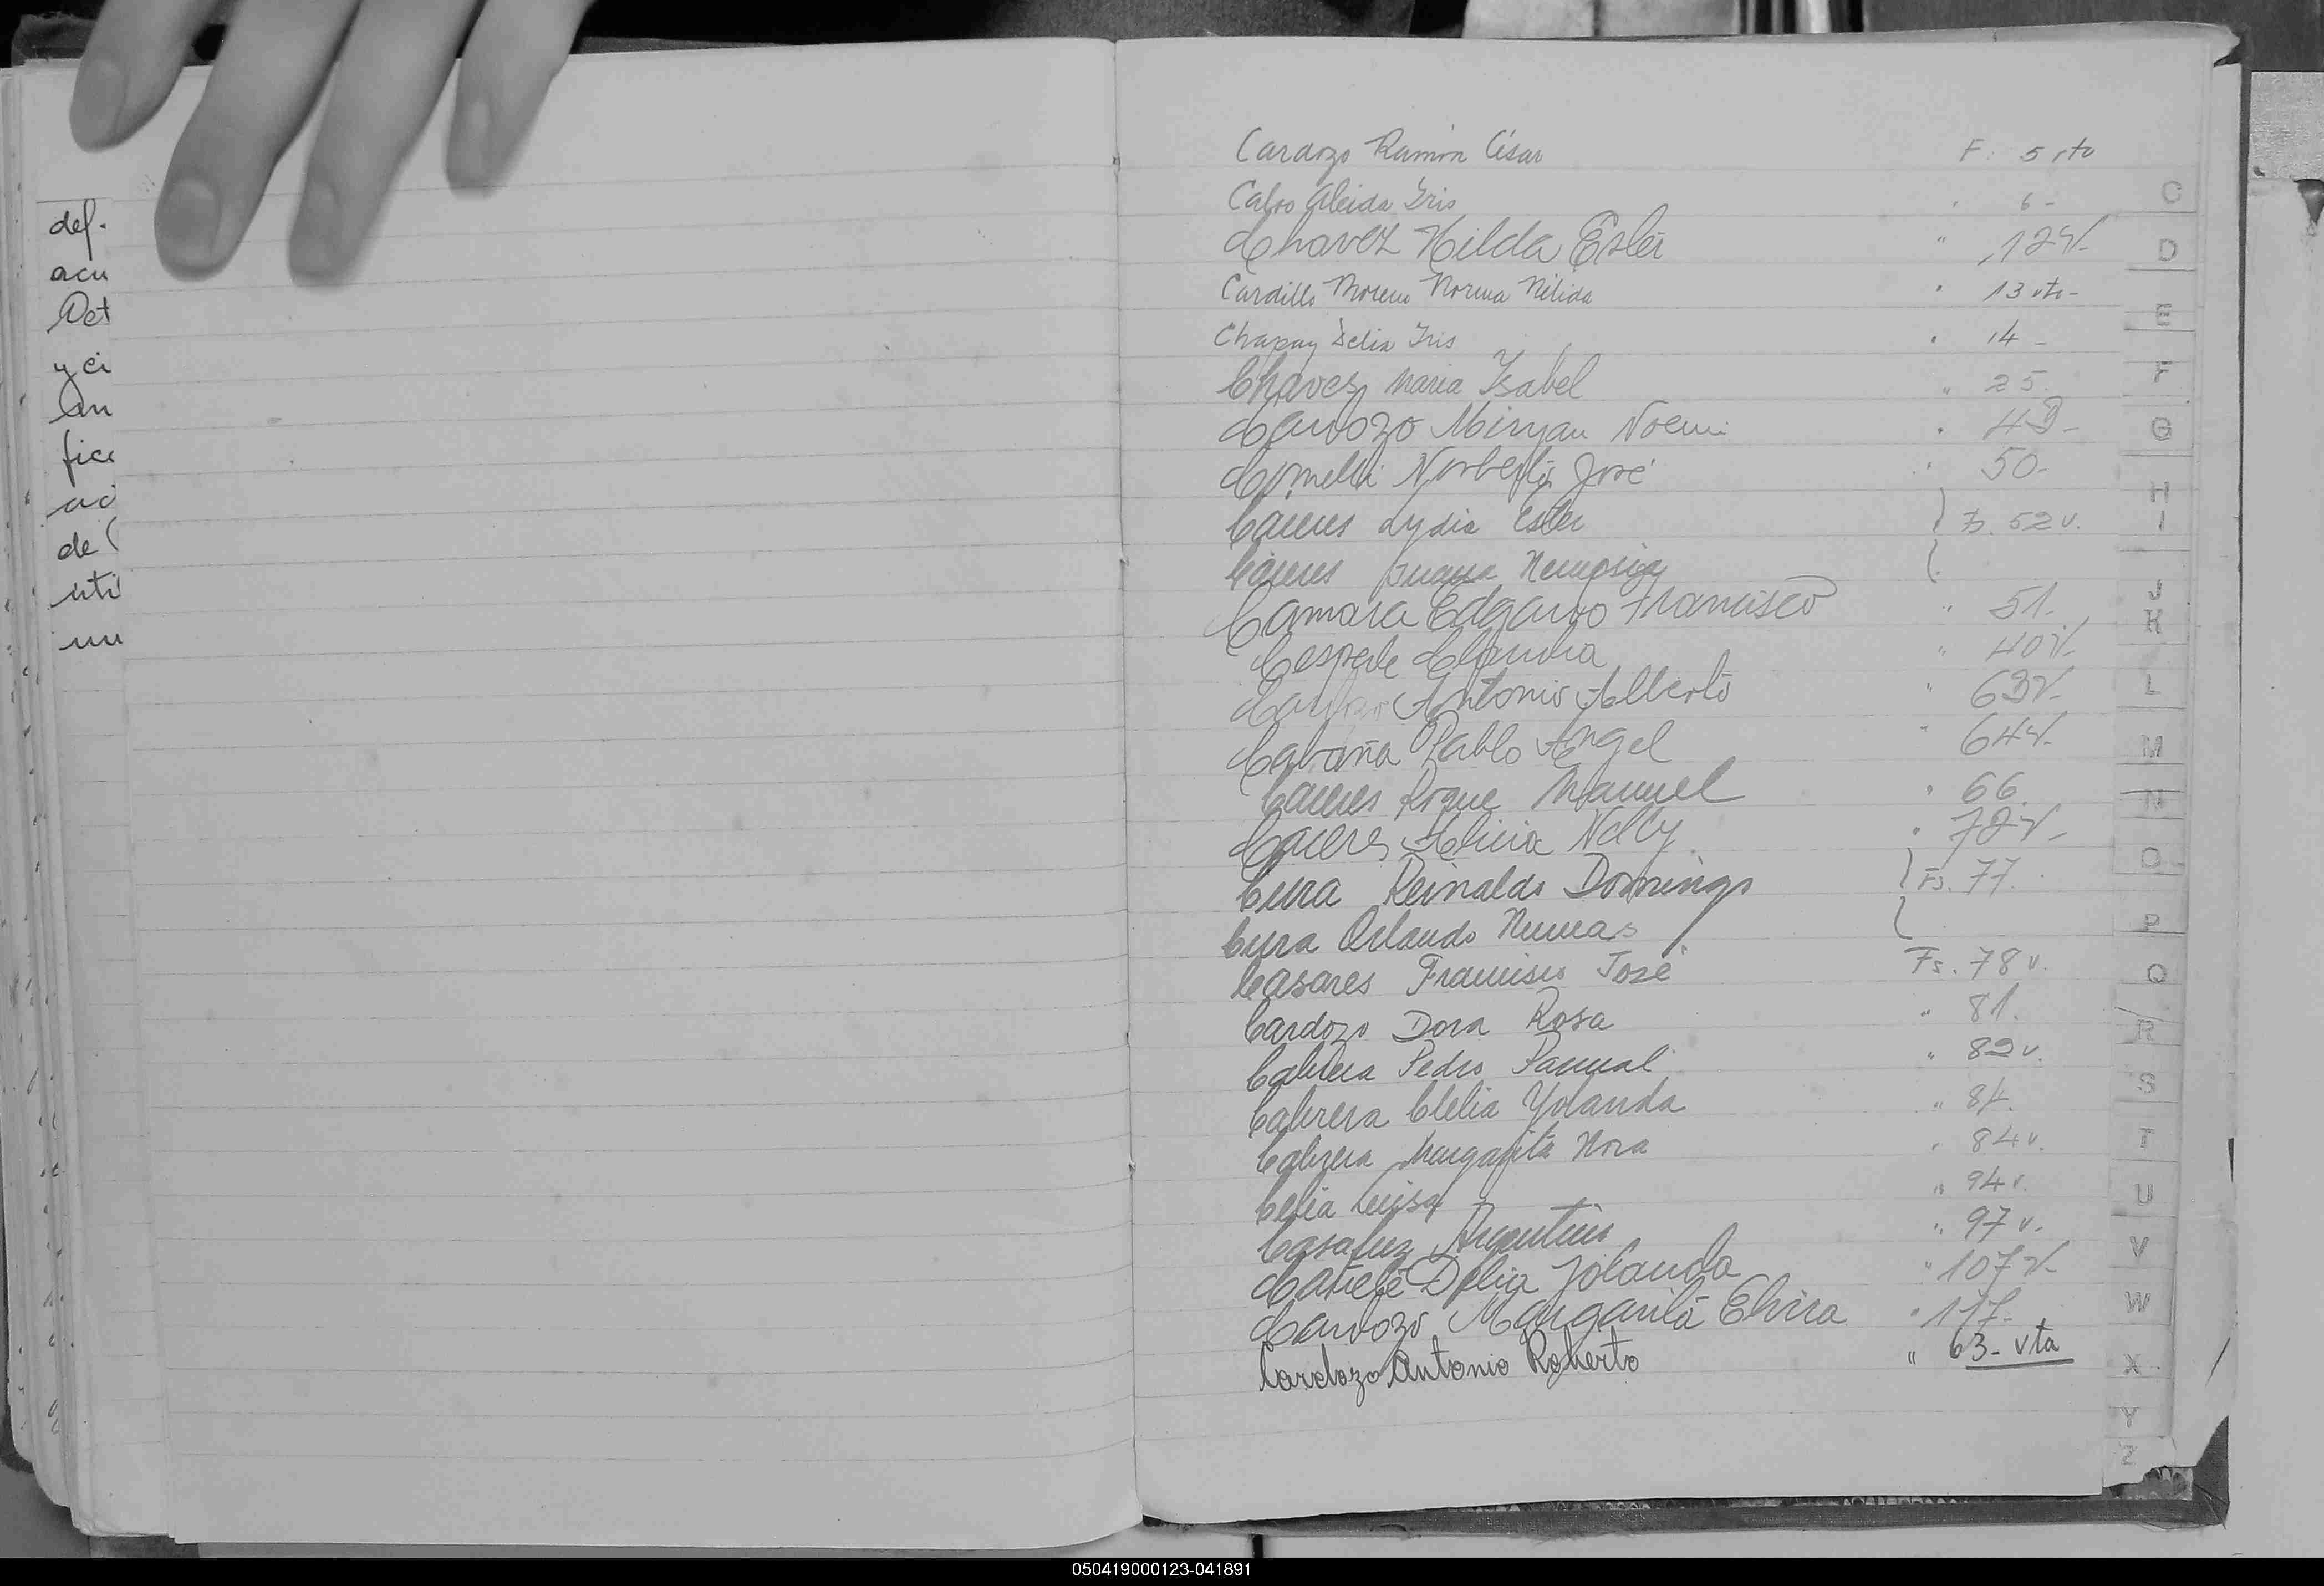 def.
acu
Det
y ci
an
fic
ac
de
uti
un
Cardozo Ramón César F. 5 vto
Calvo Aleida Iris " 6 -
Chavez Hilda Ester " 12 v.
Cardillo Moreno Norma Nélida " 13 vto -
Chapay Delia Iris " 14 -
Chavez Maria Isabel " 25.
Cardozo Miryan Noemi " 49 -
Comelli Norberto José " 50 -
Caceres Lydia Ester } Fs. 52 v.
Caceres Juana Nemesia
Camara Edgardo Francisco " 51.
Cespede Claudia " 40 v.
Antonio Alberto " 63 v.
Cabaña Pablo Angel " 64 v.
Caceres Roque Manuel " 66.
Caceres Alicia Nelly " 72 v.
Cura Reinaldo Domingo } Fs. 77.
Cura Orlando Numas
Casares Francisco José Fs. 78 v.
Cardozo Dora Rosa " 81.
Cabrera Pedro Pascual " 82 v.
Cabrera Clelia Yolanda " 84.
Cabrera Margarita Nora " 84 v.
Celia Luisa " 94 v.
Casafuz Argentino " 97 v.
Cañete Delia Jolanda " 107 v.
Cardozo Margarita Elvira " 117.
Cardozo Antonio Roberto " 63 - vta
C
D
E
F
G
H
I
J
K
L
M
N
O
P
Q
R
S
T
U
V
W
X
Y
Z
050419000123-041891